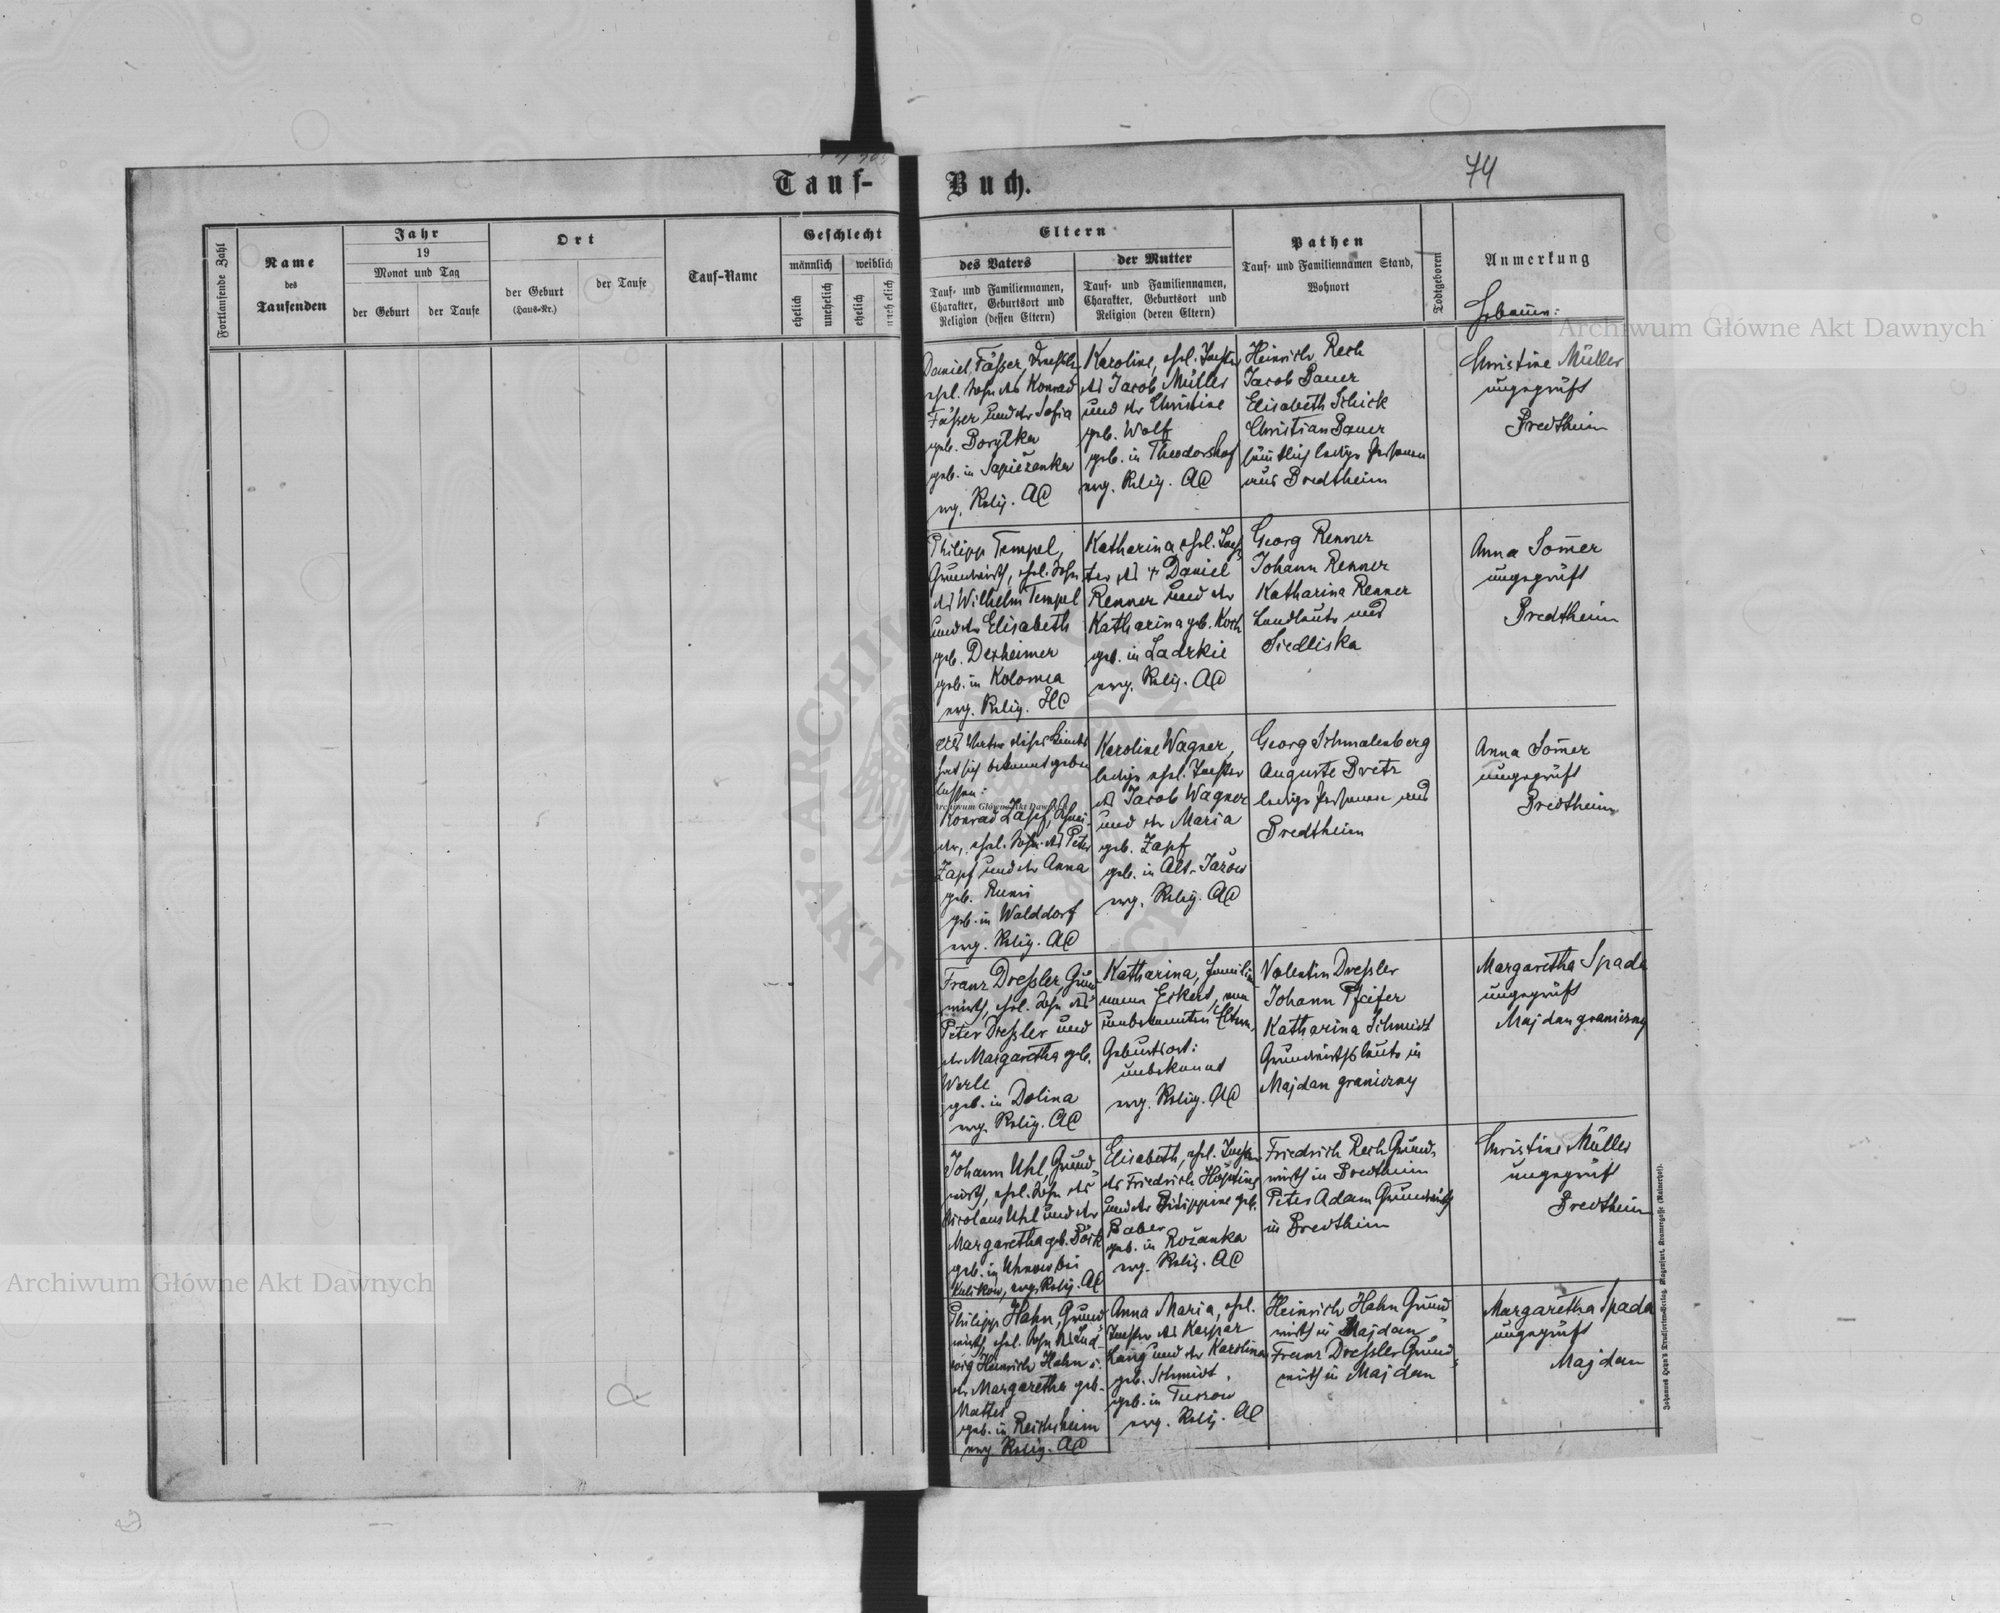 Tauf-
Buch.
74
Fortlaufende Zahl
Name
des
Taufenden
Jahr
19
Monat und Tag
der Geburt
der Taufe
Ort
der Geburt
(Haus-Nr.)
der Taufe
Tauf-Name
Geschlecht
männlich
weiblich
ehelich
unehelich
ehelich
unehelich
Eltern
des Vaters
Tauf- und Familiennamen,
Charakter, Geburtsort und
Religion (dessen Eltern)
der Mutter
Tauf- und Familiennamen,
Charakter, Geburtsort und
Religion (deren Eltern)
Pathen
Tauf- und Familiennamen Stand,
Wohnort
Todtgeboren
Anmerkung
Hebamme:
Daniel Fässer, Drechsler
ehel. Sohn des Konrad
Fässer und der Sofia
geb. Borytka
geb. in Sapieżanka
evg. Relig. AC
Karoline, ehel. Tochter
des Jacob Müller
und der Christine
geb. Wolf
geb. in Theodorshof
evg. Relig. AC
Heinrich Rech
Jacob Bauer
Elisabeth Schick
Christian Bauer
sämtlich ledige Personen
aus Bredtheim
Christine Müller
ungeprüft
Bredtheim
Philipp Tempel,
Grundwirth, ehel. Sohn
des Wilhelm Tempel
und der Elisabeth
geb. Dexheimer
geb. in Kolomea
evg. Relig. HC
Katharina ehel. Toch
ter des + Daniel
Renner und der
Katharina geb. Koch
geb. in Ladzkie
evg. Relig. AC
Georg Renner
Johann Renner
Katharina Renner
Landleute aus
Siedliska
Anna Som̄er
ungeprüft
Bredtheim
Als Vater dieses Kindes
hat sich bekannt geben
lassen:
Konrad Zapf, Schnei-
der, ehel. Sohn des Peter
Zapf und der Anna
geb.
geb. in Walddorf
evg. Relig. AC
Karoline Wagner,
ledige ehel. Tochter
des Jacob Wagner
und der Maria
geb. Zapf
geb. in Alt-Jażow
evg. Relig. AC
Georg Schmalenberg
Auguste Bretz
ledige Personen aus
Bredtheim
Anna Som̄er
ungeprüft
Bredtheim
Franz Dreßler, Grund
wirth, ehel. Sohn des
Peter Dreßler und
der Margaretha geb.
Werle
geb. in Dolina
evg. Relig. AC
Katharina, Familien
name Eckert, von
unbekannten Eltern,
Geburtsort:
unbekannt
evg. Relig. AC
Valentin Dreßler
Johann Pfeifer
Katharina Schmidt
Grundwirthsleute in
Majdan graniczny
Margaretha Spada
ungeprüft
Majdan graniczny
Johann Uhl, Grund-
wirth, ehel. Sohn des
Nicolaus Uhl und der
Margaretha geb. Börk
geb. in bei
Kulikow, evg. Relig. AC
Elisabeth, ehel. Tochter
des Friedrich
und der Philippine geb.
Baber
geb. in Rożanka
evg. Relig. AC
Friedrich Rech Grund-
wirth in Bredtheim
Peter Adam Grundwirth
in Bredtheim
Christine Müller
ungeprüft
Bredtheim
Philipp Hahn, Grund-
wirth, ehel. Sohn des Lud-
wig Heinrich Hahn u.
der Margaretha geb.
Mattes
geb. in Reichsheim
evg. Relig. AC
Anna Maria, ehel.
Tochter des Kaspar
Lang und der Karolina
geb. Schmidt,
geb. in
evg. Relig. AC
Heinrich Hahn Grund-
wirth in Majdan
Franz Dressler Grund-
wirth in Majdan
Margaretha Spada
ungeprüft
Majdan
Archiwum Główne Akt Dawnych
Archiwum Główne Akt Dawnych
Archiwum Główne Akt Dawnych